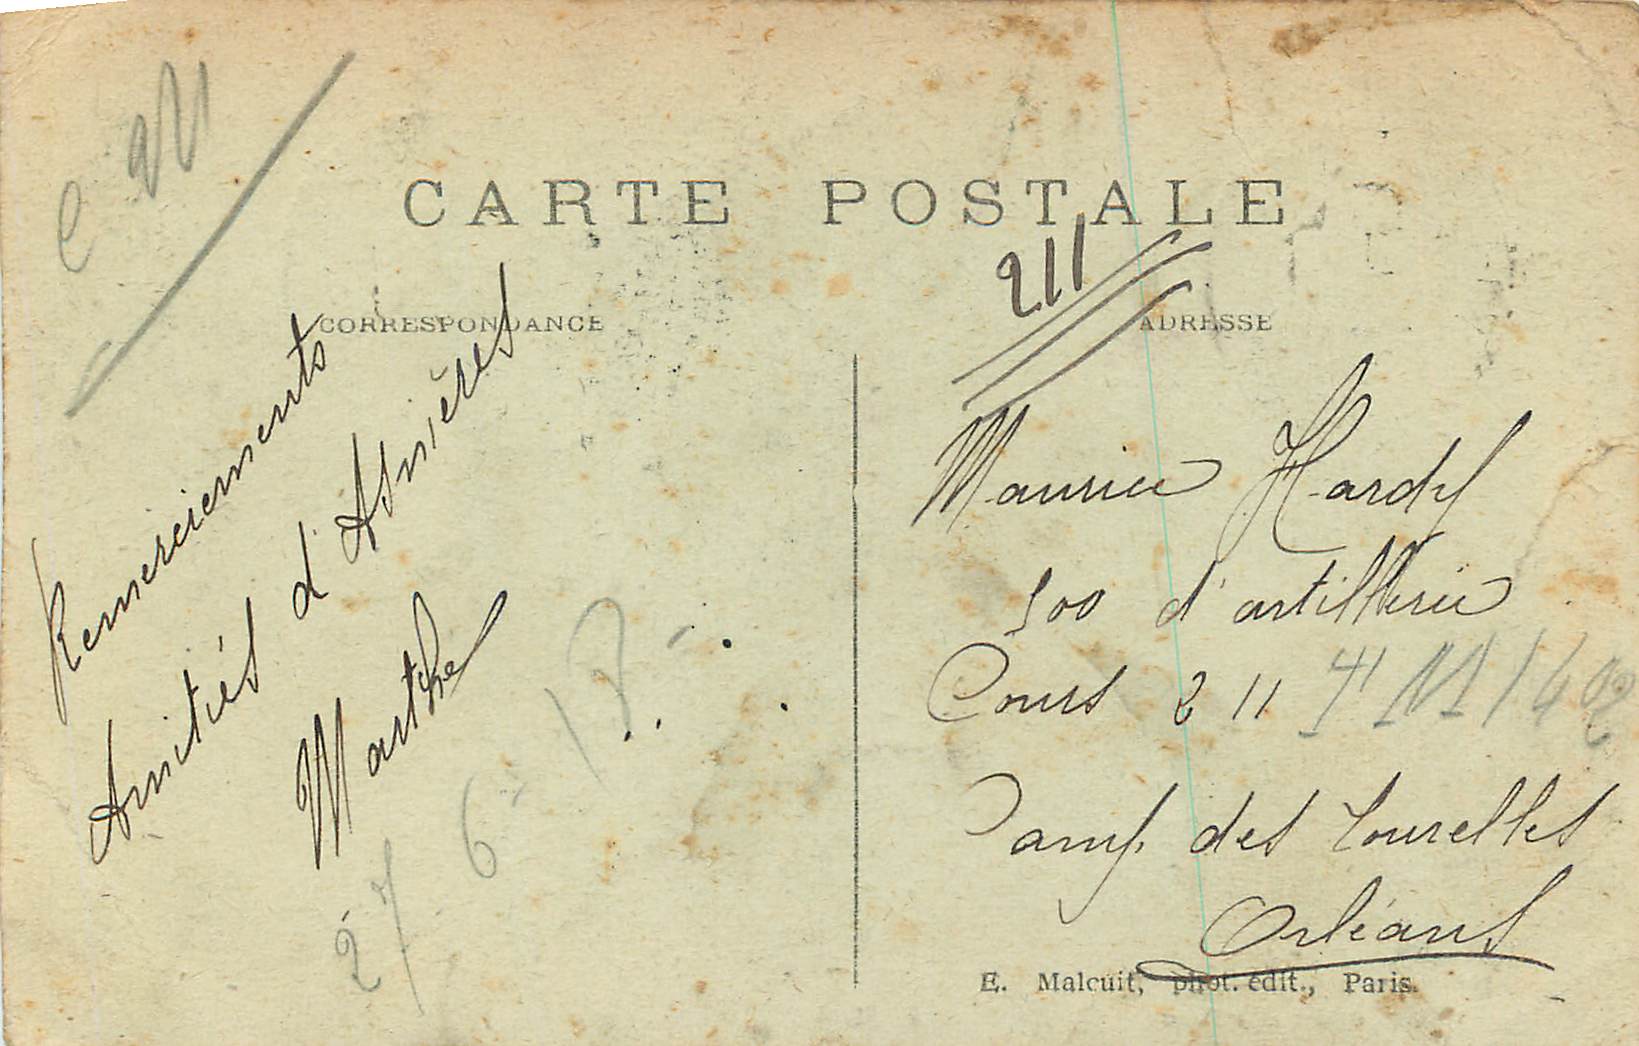 CARTE POSTALE
CORRESPONDANCE
ADRESSE
211
Remerciements
Amitiés d'Asnières
Marthe
27 6 17
Maurice Hardy
500 d'artillerie
Cours 211
Camp des Tourelles
Orléans
E. Malcuit, phot. édit., Paris.